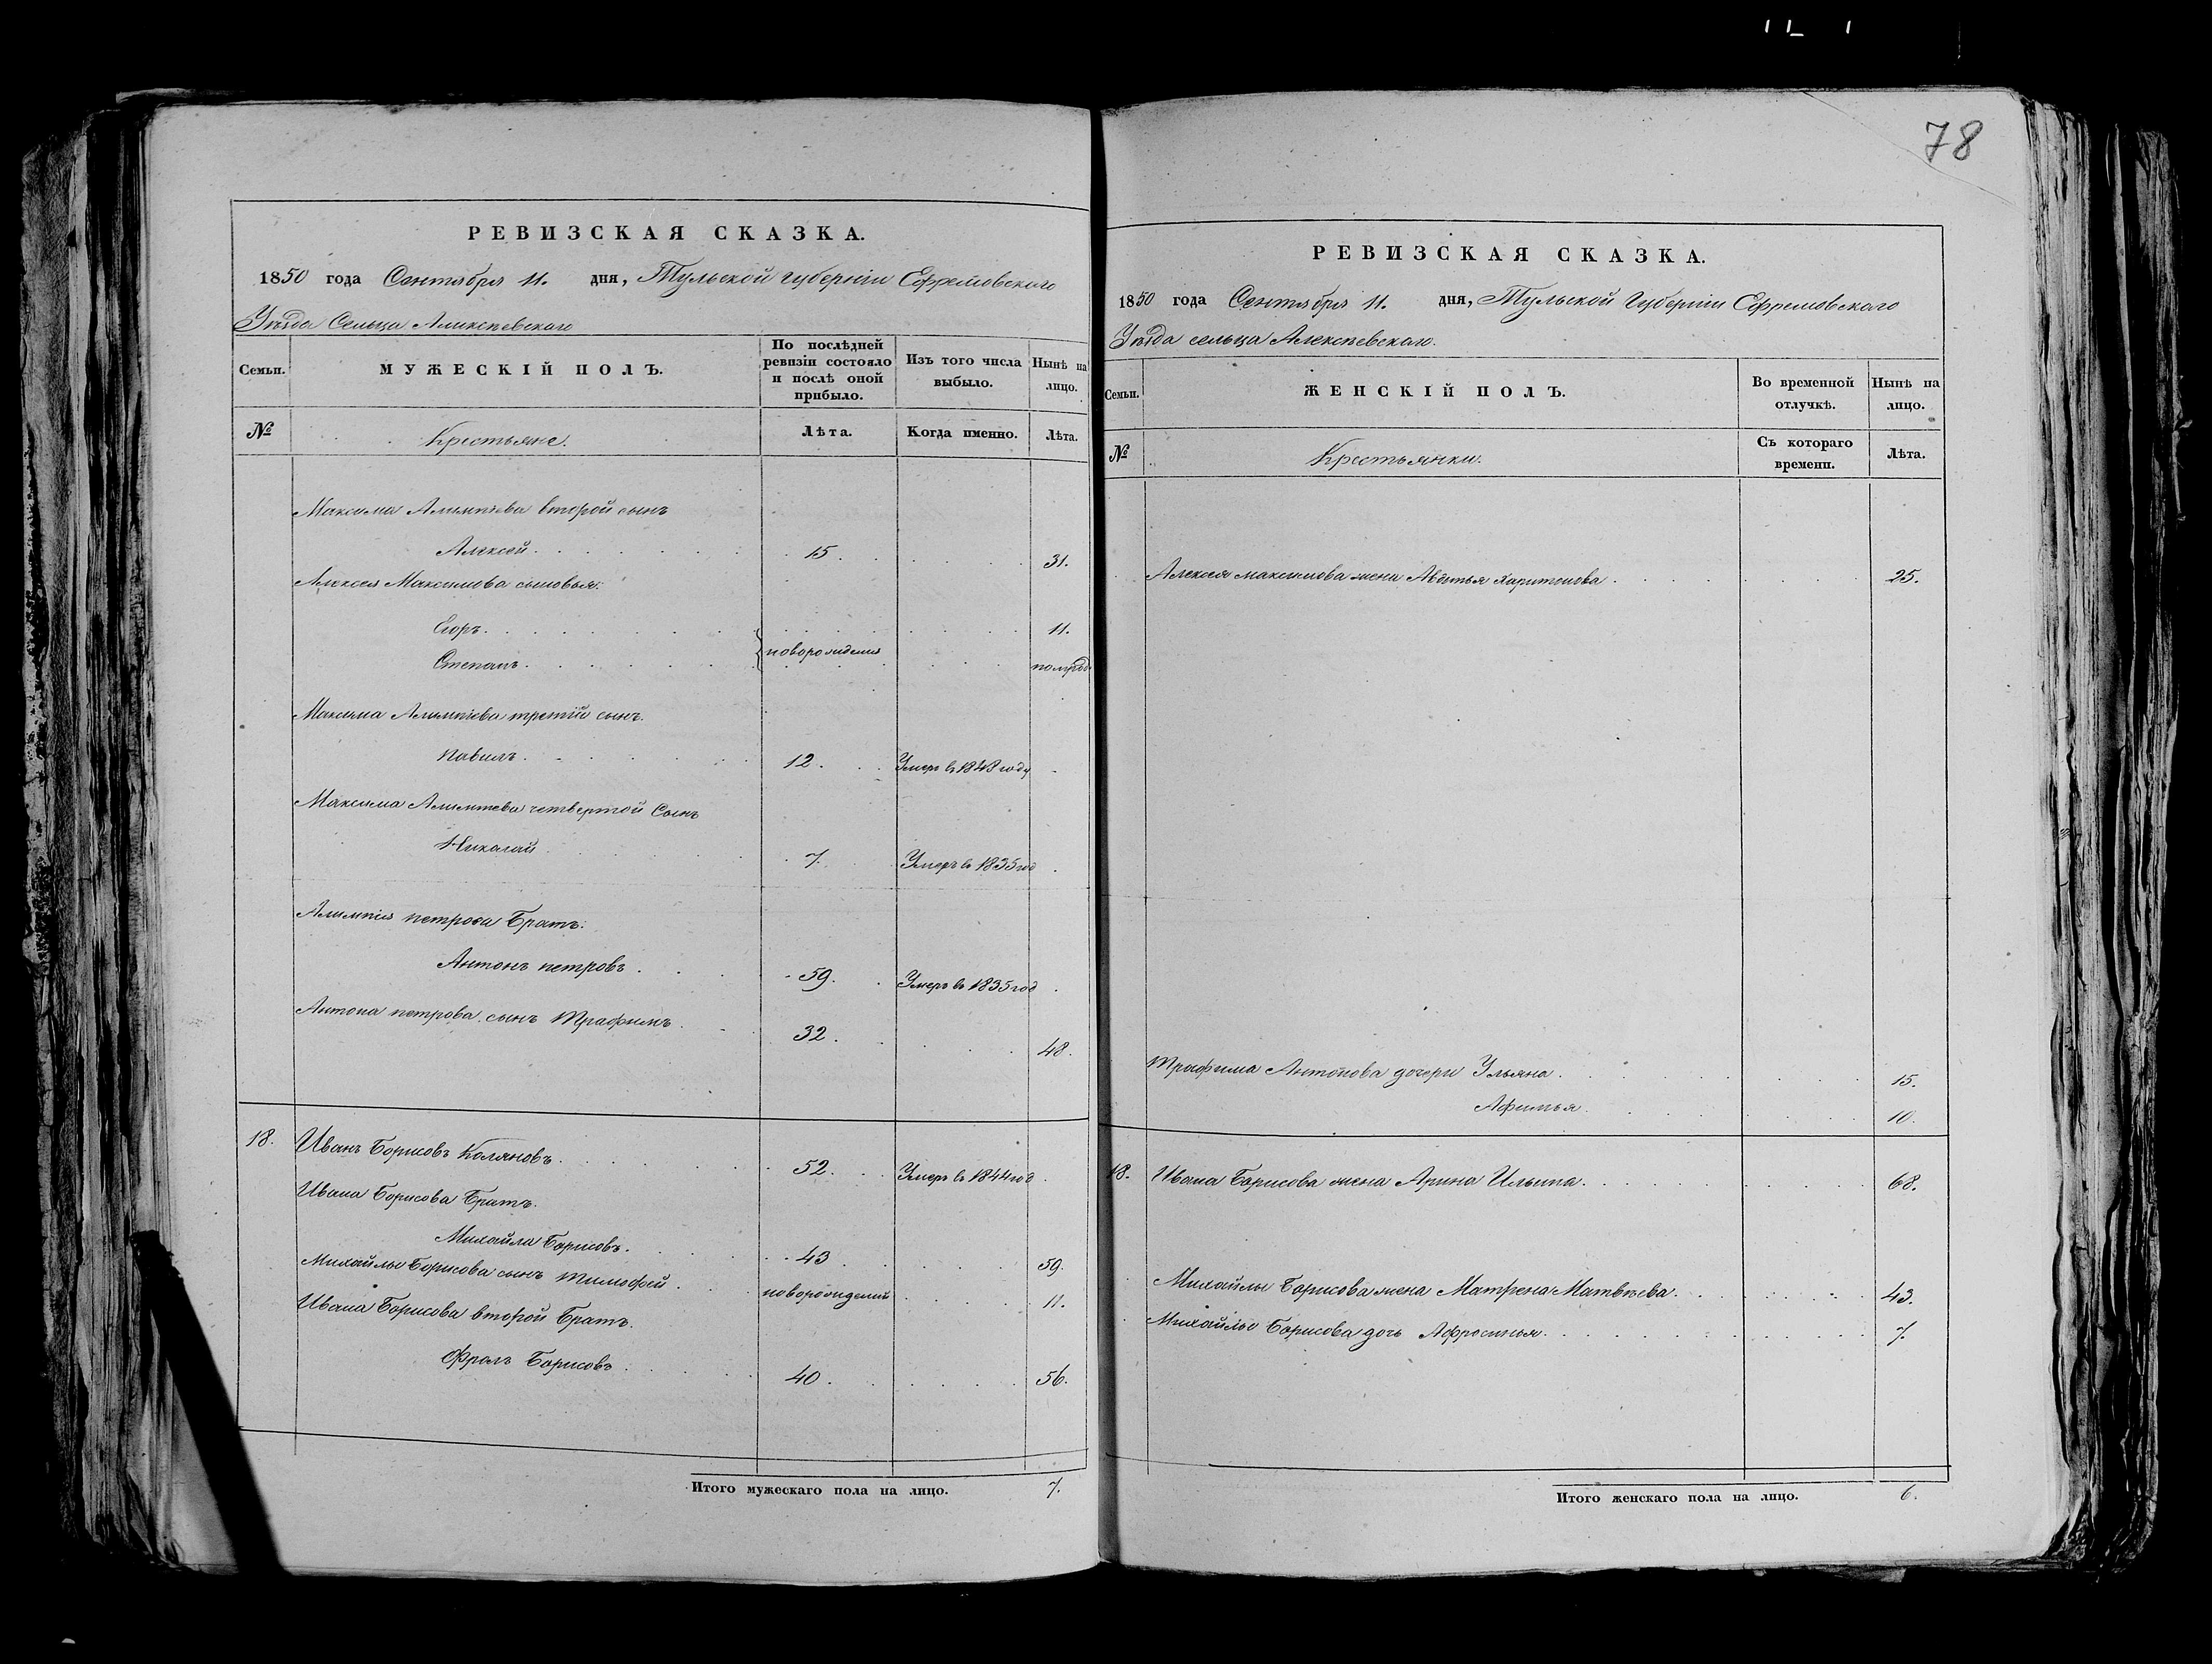 78
РЕВИЗСКАЯ СКАЗКА.
1850 года Сентября 11. дня, Тульской губерніи Ефремовскаго
Уѣзда Сельца Алексѣевскаго
Семьи.
МУЖЕСКІЙ ПОЛЪ.
По послѣдней ревизіи состояло и послѣ оной прибыло.
Изъ того числа выбыло.
Нынѣ на лицо.
№
Крестьяне.
Лѣта.
Когда именно.
Лѣта.
Максима Алимпіева второй сынъ
Алексей. 15. 31.
Алексея Максимова сыновья:
Егоръ. 11.
новорожденія
Степанъ. полгода
Максима Алимпіева третій сынъ.
Павилъ. 12. Умеръ в 1848 году
Максима Алимпева четвертой Сынъ
Николай 7. Умеръ в 1835 год
Алимпія петрова Братъ:
Антонъ петровъ. 59. Умеръ в 1835 год
Антона петрова сынъ Трафимъ. 32. 48.
18. Иванъ Борисовъ Коляновъ. 52. Умеръ в 1844 год
Ивана Борисова Братъ.
Михайла Борисовъ. 43 59.
Михайлы Борисова сынъ Тимофей. новорожденій 11.
Ивана Борисова второй Братъ.
Фролъ Борисовъ. 40. 56.
Итого мужескаго пола на лицо. 7.
РЕВИЗСКАЯ СКАЗКА.
1850 года Сентября 11. дня, Тульской Губерніи Ефремовскаго
Уѣзда сельца Алексѣевскаго.
Семьи.
ЖЕНСКІЙ ПОЛЪ.
Во временной отлучкѣ.
Нынѣ на лицо.
№
Крестьянки.
Съ котораго времени.
Лѣта.
Алексея максимова жена Авдотья Харитонова. 25.
Трафима Антонова дочери Ульяна. 15.
Афимья. 10.
18. Ивана Борисова жена Арина Ильина. 68.
Михайлы Борисова жена Матрена Матвѣева. 43.
Михайлы Борисова дочь Афросинья. 7.
Итого женскаго пола на лицо. 6.